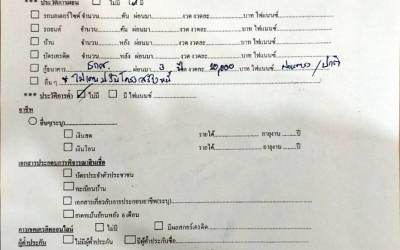 *** ประวัติการผ่อน ไม่มี มี
รถมอเตอร์ไซค์ จำนวน คัน ผ่อนมา งวด งวดละ บาท ไฟแนนซ์
รถยนต์ จำนวน คัน ผ่อนมา งวด งวดละ บาท ไฟแนนซ์
บ้าน จำนวน หลัง ผ่อนมา งวด งวดละ บาท ไฟแนนซ์
บัตรเครดิต จำนวน หลัง ผ่อนมา งวด งวดละ บาท ไฟแนนซ์
กู้ธนาคาร ธกส. ผ่อนมา 3 ปี งวดละ 20,000 บาท ไฟแนนซ์ / ปกติ
อื่นๆ * ไม่เคยปรับโครงสร้างหนี้
*** ประวัติการค้ำ ไม่มี มี ไฟแนนซ์
อาชีพ
อื่นๆระบุ
เงินสด รายได้ อายุงาน ปี
เงินโอน รายได้ อายุงาน ปี
เอกสารประกอบการพิจารณาสินเชื่อ
บัตรประจำตัวประชาชน
ทะเบียนบ้าน
เอกสารเกี่ยวกับการประกอบอาชีพ(ระบุ)
สเตทเม้นย้อนหลัง 6 เดือน
ไม่มี มีผลคาร์เครดิต
ผู้ค้ำประกัน ไม่มีผู้ค้ำประกัน มีผู้ค้ำประกันชื่อ